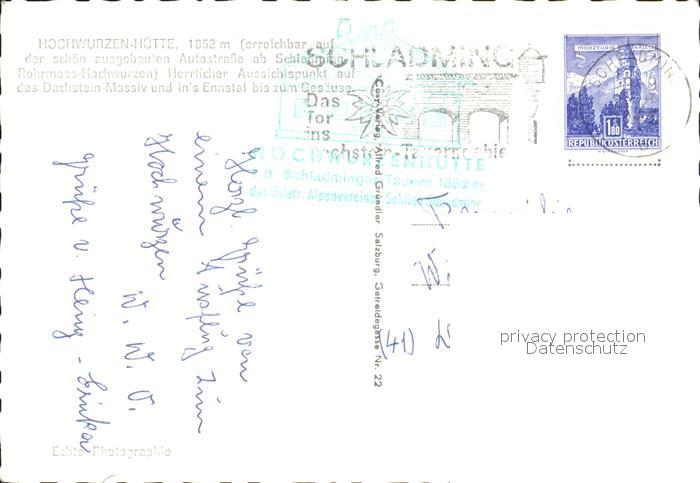 HOCHWURZEN-HÜTTE, 1852 m (erreichbar auf
der schön ausgebauten Autostraße ab Schladming
Rohrmoos-Hochwurzen) Herrlicher Aussichtspunkt auf
das Dachstein-Massiv und in's Ennstal bis zum Gesäuse.
SCHLADMING
Das
Tor
ins
HOCHWURZENHÜTTE
Schladminger Tauern 1852 m
des Österr. Alpenvereines Sektion
MÜNZTURM
1.80
REPUBLIK ÖSTERREICH
SCHLADMING
Cosy-Verlag, Alfred Gründler, Salzburg, Getreidegasse Nr. 22
Herzl. Grüße von
einem Ausflug zum
Hochwurzen
W. W. O.
Grüße v. Heinz - Erika
W.
(41)
privacy protection
Datenschutz
Echte Photographie